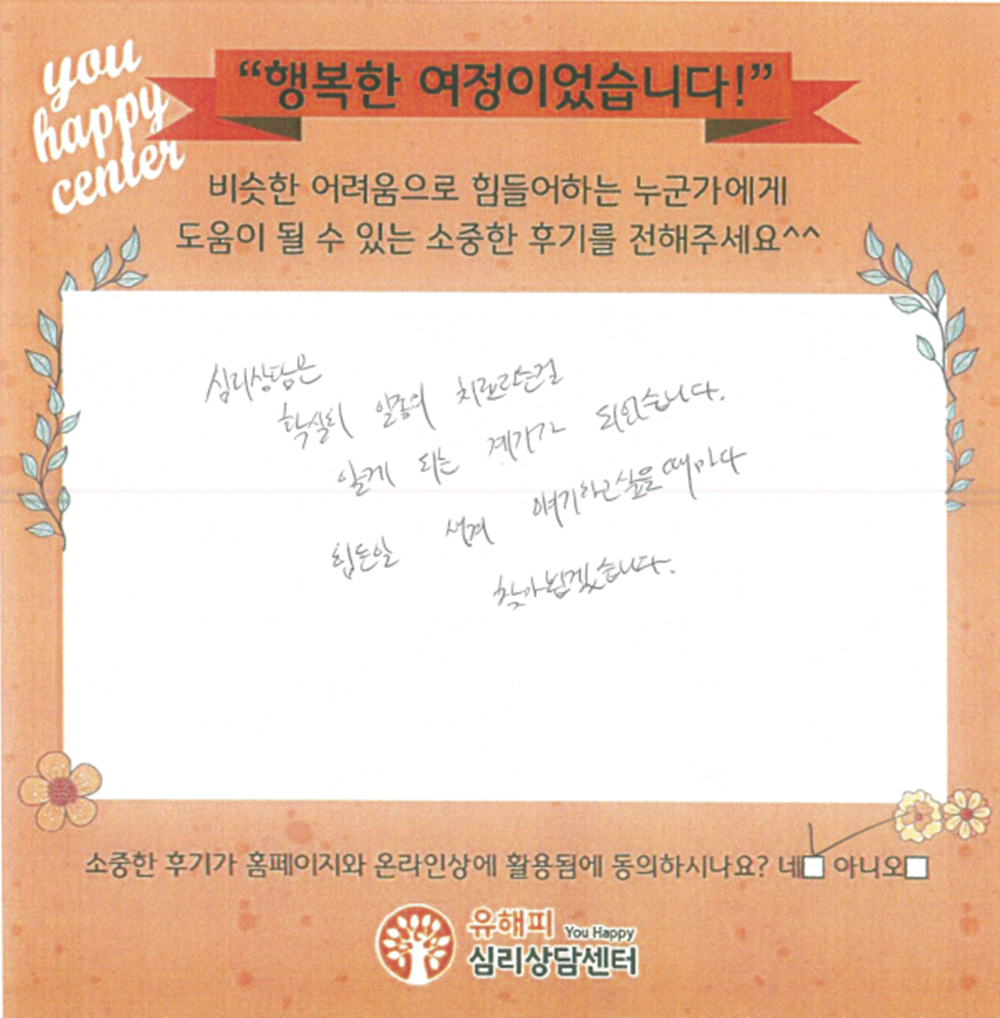 you
happy
center
“행복한 여정이었습니다!”
비슷한 어려움으로 힘들어하는 누군가에게
도움이 될 수 있는 소중한 후기를 전해주세요^^
심리상담은
확실히 일종의 치료라는걸
알게 되는 계기가 되었습니다.
힘든일 생겨 얘기하고싶을때마다
찾아뵙겠습니다.
소중한 후기가 홈페이지와 온라인상에 활용됨에 동의하시나요? 네 아니오
유해피 You Happy
심리상담센터